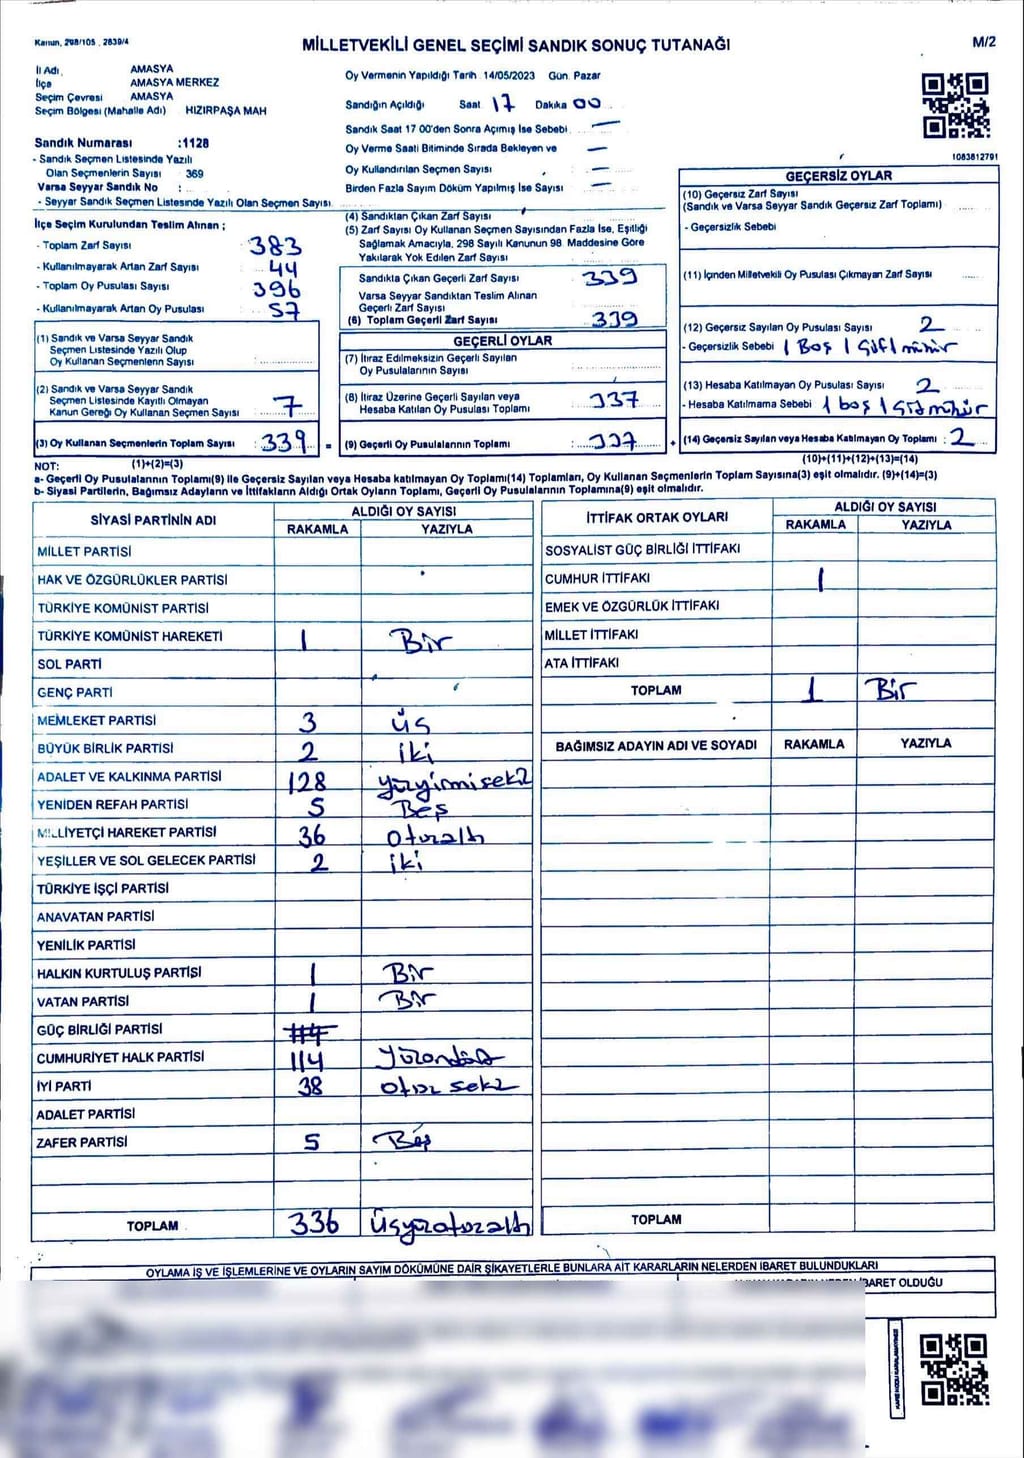 Kanun, 298/105 , 2839/4
MİLLETVEKİLİ GENEL SEÇİMİ SANDIK SONUÇ TUTANAĞI
M/2
İl Adı AMASYA
İlçe AMASYA MERKEZ
Seçim Çevresi AMASYA
Seçim Bölgesi (Mahalle Adı) HIZIRPAŞA MAH
Oy Vermenin Yapıldığı Tarih 14/05/2023 Gün Pazar
Sandığın Açıldığı Saat 17 Dakika 00
Sandık Saat 17 00'den Sonra Açımış İse Sebebi —
Oy Verme Saati Bitiminde Sırada Bekleyen ve —
Oy Kullandırılan Seçmen Sayısı —
Birden Fazla Sayım Döküm Yapılmış İse Sayısı —
Sandık Numarası :1128
- Sandık Seçmen Listesinde Yazılı
Olan Seçmenlerin Sayısı 369
Varsa Seyyar Sandık No :
- Seyyar Sandık Seçmen Listesinde Yazılı Olan Seçmen Sayısı
1083812791
İlçe Seçim Kurulundan Teslim Alınan ;
- Toplam Zarf Sayısı 383
- Kullanılmayarak Artan Zarf Sayısı 44
- Toplam Oy Pusulası Sayısı 396
- Kullanılmayarak Artan Oy Pusulası 57
(1) Sandık ve Varsa Seyyar Sandık
Seçmen Listesinde Yazılı Olup
Oy Kullanan Seçmenlerin Sayısı
(2) Sandık ve Varsa Seyyar Sandık
Seçmen Listesinde Kayıtlı Olmayan
Kanun Gereği Oy Kullanan Seçmen Sayısı 7
(3) Oy Kullanan Seçmenlerin Toplam Sayısı : 339 =
(1)+(2)=(3)
(4) Sandıktan Çıkan Zarf Sayısı
(5) Zarf Sayısı Oy Kullanan Seçmen Sayısından Fazla İse, Eşitliği
Sağlamak Amacıyla, 298 Sayılı Kanunun 98 Maddesine Göre
Yakılarak Yok Edilen Zarf Sayısı
Sandıkta Çıkan Geçerli Zarf Sayısı 339
Varsa Seyyar Sandıktan Teslim Alınan
Geçerli Zarf Sayısı
(6) Toplam Geçerli Zarf Sayısı 339
GEÇERLİ OYLAR
(7) İtiraz Edilmeksizin Geçerli Sayılan
Oy Pusulalarının Sayısı
(8) İtiraz Üzerine Geçerli Sayılan veya
Hesaba Katılan Oy Pusulası Toplamı 337
(9) Geçerli Oy Pusulalarının Toplamı : 337 +
GEÇERSİZ OYLAR
(10) Geçersiz Zarf Sayısı
(Sandık ve Varsa Seyyar Sandık Geçersiz Zarf Toplamı)
- Geçersizlik Sebebi
(11) İçinden Milletvekili Oy Pusulası Çıkmayan Zarf Sayısı
(12) Geçersiz Sayılan Oy Pusulası Sayısı 2
- Geçersizlik Sebebi 1 Boş 1 Çift mühür
(13) Hesaba Katılmayan Oy Pusulası Sayısı 2
- Hesaba Katılmama Sebebi 1 boş 1 mühür
(14) Geçersiz Sayılan veya Hesaba Katılmayan Oy Toplamı : 2
(10)+(11)+(12)+(13)=(14)
NOT:
a- Geçerli Oy Pusulalarının Toplamı(9) ile Geçersiz Sayılan veya Hesaba katılmayan Oy Toplamı(14) Toplamları, Oy Kullanan Seçmenlerin Toplam Sayısına(3) eşit olmalıdır. (9)+(14)=(3)
b- Siyasi Partilerin, Bağımsız Adayların ve İttifakların Aldığı Ortak Oyların Toplamı, Geçerli Oy Pusulalarının Toplamına(9) eşit olmalıdır.
SİYASİ PARTİNİN ADI ALDIĞI OY SAYISI
RAKAMLA YAZIYLA
MİLLET PARTİSİ
HAK VE ÖZGÜRLÜKLER PARTİSİ
TÜRKİYE KOMÜNİST PARTİSİ
TÜRKİYE KOMÜNİST HAREKETİ 1 Bir
SOL PARTİ
GENÇ PARTİ
MEMLEKET PARTİSİ 3 üç
BÜYÜK BİRLİK PARTİSİ 2 iki
ADALET VE KALKINMA PARTİSİ 128 yüzyirmisekiz
YENİDEN REFAH PARTİSİ 5 Beş
MİLLİYETÇİ HAREKET PARTİSİ 36 otuzaltı
YEŞİLLER VE SOL GELECEK PARTİSİ 2 iki
TÜRKİYE İŞÇİ PARTİSİ
ANAVATAN PARTİSİ
YENİLİK PARTİSİ
HALKIN KURTULUŞ PARTİSİ 1 Bir
VATAN PARTİSİ 1 Bir
GÜÇ BİRLİĞİ PARTİSİ 114
CUMHURİYET HALK PARTİSİ 114 Yüzondört
İYİ PARTİ 38 otuz sekiz
ADALET PARTİSİ
ZAFER PARTİSİ 5 Beş
TOPLAM 336 üçyüzotuzaltı
İTTİFAK ORTAK OYLARI ALDIĞI OY SAYISI
RAKAMLA YAZIYLA
SOSYALİST GÜÇ BİRLİĞİ İTTİFAKI
CUMHUR İTTİFAKI 1
EMEK VE ÖZGÜRLÜK İTTİFAKI
MİLLET İTTİFAKI
ATA İTTİFAKI
TOPLAM 1 Bir
BAĞIMSIZ ADAYIN ADI VE SOYADI RAKAMLA YAZIYLA
TOPLAM
OYLAMA İŞ VE İŞLEMLERİNE VE OYLARIN SAYIM DÖKÜMÜNE DAİR ŞİKAYETLERLE BUNLARA AİT KARARLARIN NELERDEN İBARET BULUNDUKLARI
BARET OLDUĞU